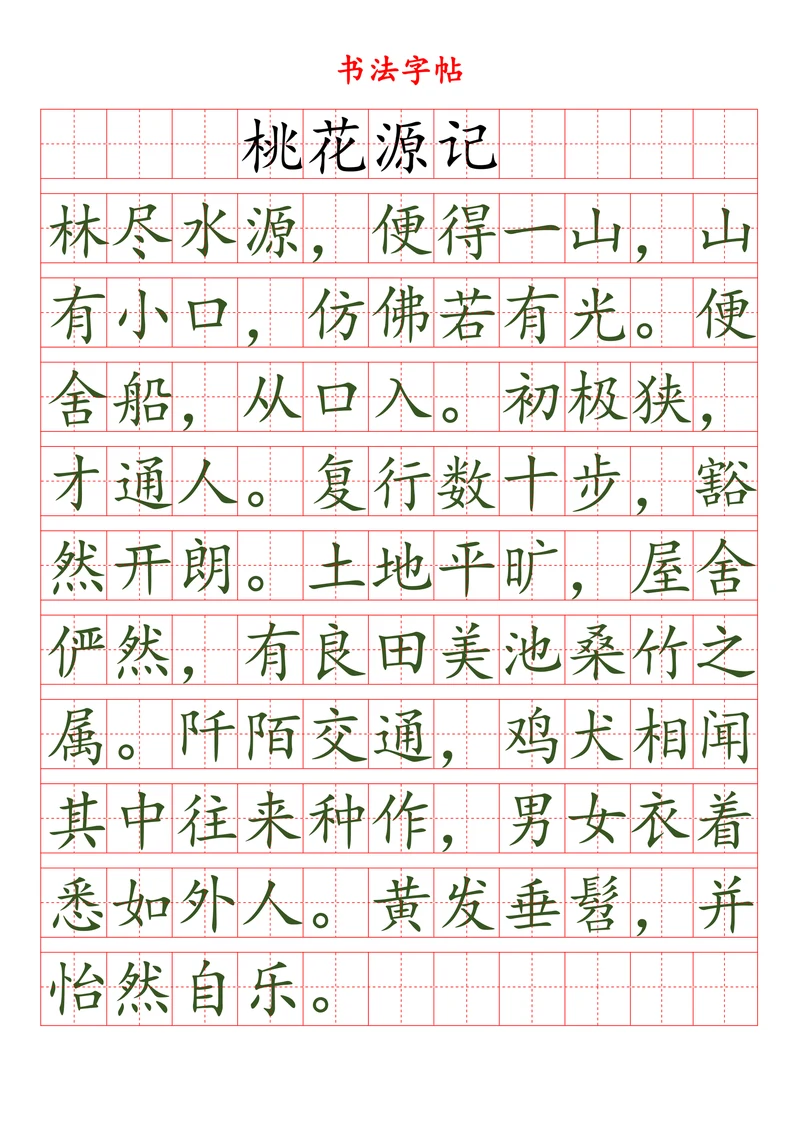 书法字帖
桃花源记
林尽水源，便得一山，山
有小口，仿佛若有光。便
舍船，从口入。初极狭，
才通人。复行数十步，豁
然开朗。土地平旷，屋舍
俨然，有良田美池桑竹之
属。阡陌交通，鸡犬相闻
其中往来种作，男女衣着
悉如外人。黄发垂髫，并
怡然自乐。